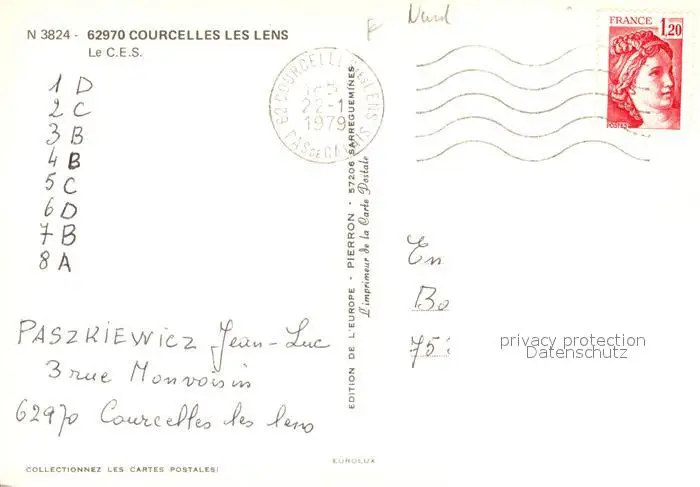 N 3824 - 62970 COURCELLES LES LENS
Le C.E.S.
Nord
F
FRANCE
1,20
POSTES
62 COURCELLES LES LENS
22-1
1979
PAS DE CALAIS
1 D
2 C
3 B
4 B
5 C
6 D
7 B
8 A
EDITION DE L'EUROPE - PIERRON - 57206 SARREGUEMINES
L'imprimeur de la Carte Postale
En
Bo
75
privacy protection
Datenschutz
PASZKIEWICZ Jean-Luc
3 rue Monvoisin
62970 Courcelles les lens
EUROLUX
COLLECTIONNEZ LES CARTES POSTALES!